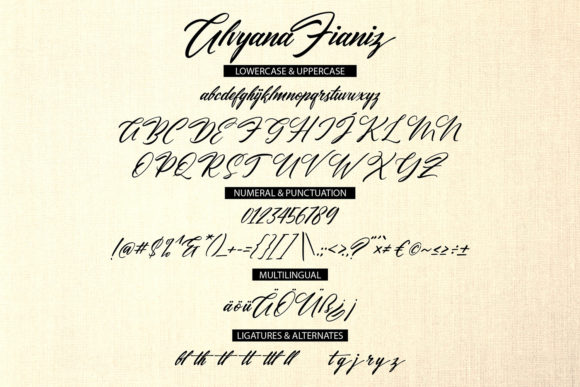 Alvyana Fianiz
LOWERCASE & UPPERCASE
abcdefghijklmnopqrstuvwxyz
ABCDEFGHIJKLMN
OPQRSTUVWXYZ
NUMERAL & PUNCTUATION
0123456789
!@#$%^&*()_+-={}[]|\.,:;<>,?"'`×≠€©~≤≥÷±
MULTILINGUAL
äöüÄÖÜß¿¡
LIGATURES & ALTERNATES
bt th tt tt tht ll t g j r y z